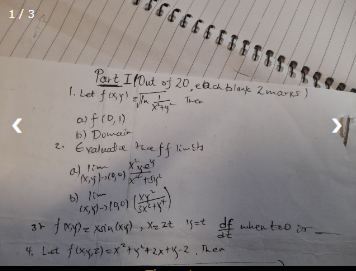 1 / 3
Part I (Out of 20, each blank 2 marks)
1. Let f(x,y) = √(ln 1/(x²+y²)) Then
a) f(0,1)
b) Domain
2. Evaluate the ff limits
a) lim (x,y)→(0,0) x²ye^y/(x⁴+5y²)
b) lim (x,y)→(0,0) (xy²/(3x²+y⁴))
3. f(x,y) = x sin(xy), x=2t y=t df/dt when t=0 is __
4. Let f(x,y,z) = x²+y²+2x+y-2. Then